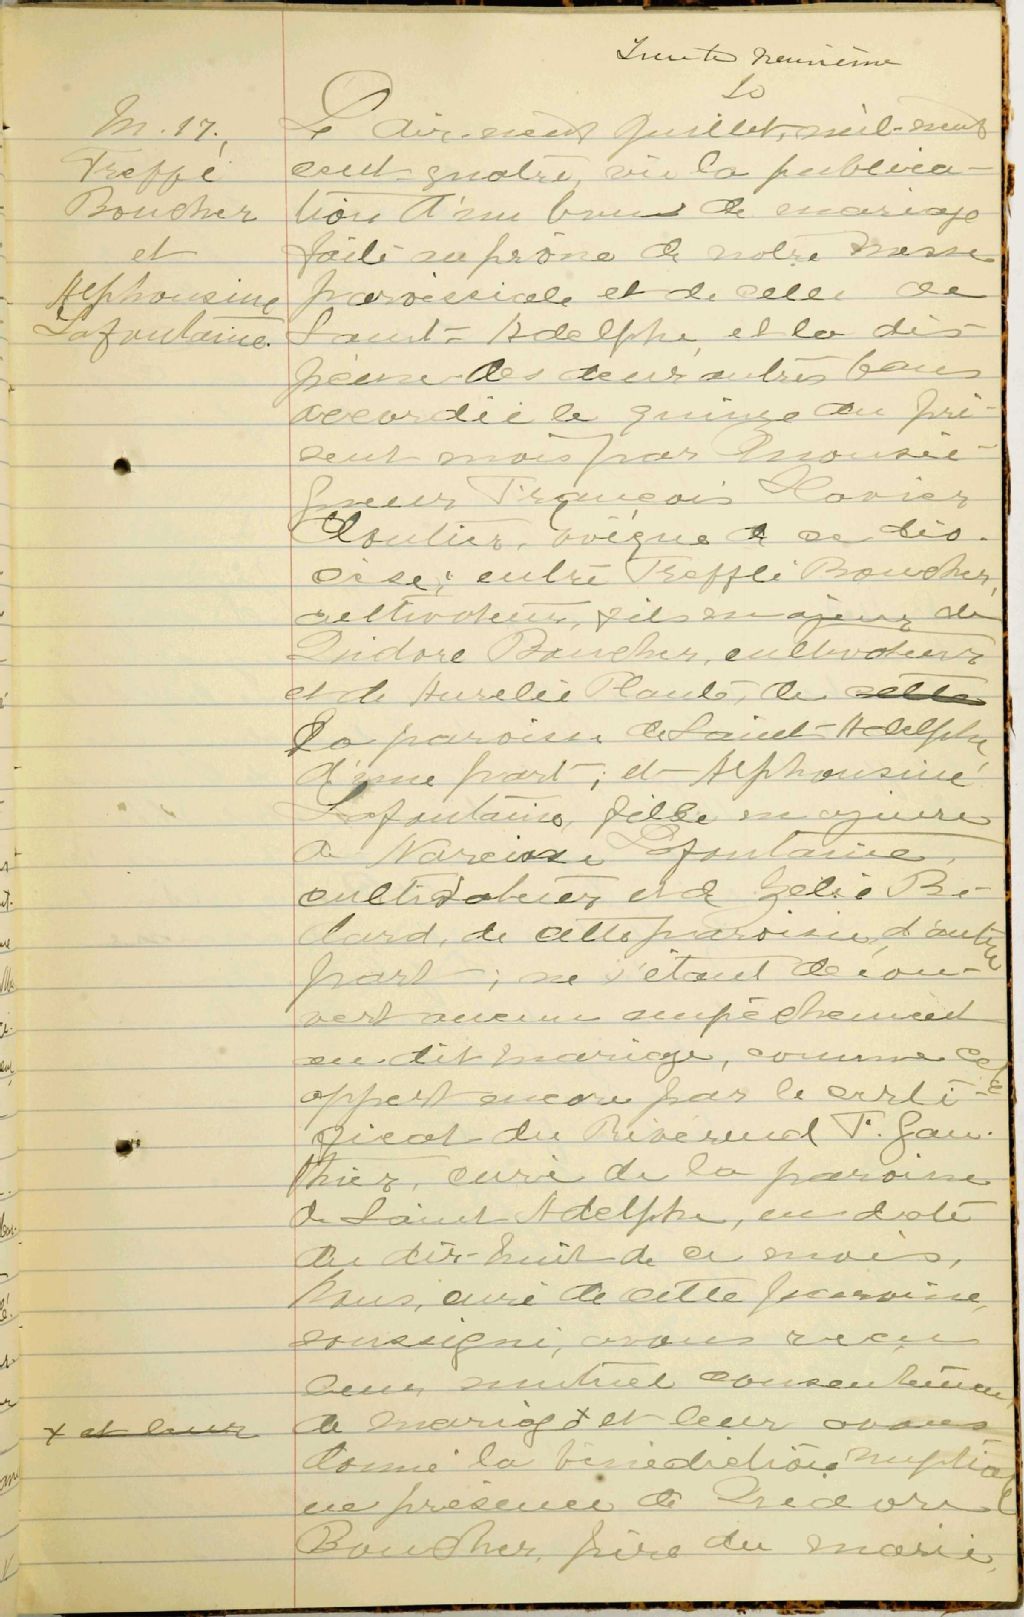 Trente neuvième
M. 17,
Treffé
Boucher
et
Alphonsine
Lafontaine.
Le dix-neuf Juillet, mil-neuf
cent-quatre, vu la publica-
tion d'un ban de mariage
faite au prône de notre messe
paroissiale et de celle de
Saint-Adelphe, et la dis-
pense des deux autres bans
accordée le quinze du pré-
sent mois par Monsei-
gneur François Xavier
Cloutier, évêque de ce dio-
cèse; entre Trefflé Boucher,
cultivateur, fils majeur de
Isidore Boucher, cultivateur
et de Aurelie Plante, de cette
la paroisse de Saint-Adelphe,
d'une part; et Alphonsine
Lafontaine, fille majeure
de Narcisse Lafontaine,
cultivateur et de Zelie Bé-
lard, de cette paroisse, d'autre
part; ne s'étant décou-
vert aucun empêchement
au dit mariage, comme cela
appert encore par le certi-
ficat du Révérend F. Gau-
thier, curé de la paroisse
de Saint Adelphe, en date
du dix-huit de ce mois,
Nous, curé de cette paroisse,
soussigné, avons reçu
leur mutuel consentement
de mariage x et leur avons
x et leur
donné la bénédiction nuptiale
en présence de Isidore
Boucher, père du marié,